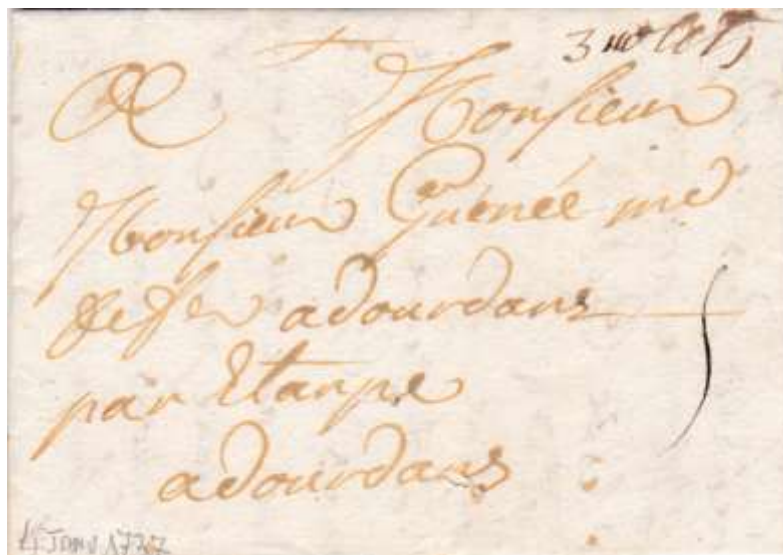 A Monsieur
Monsieur Guénée md
de fer a dourdans
par Etampe
a dourdans